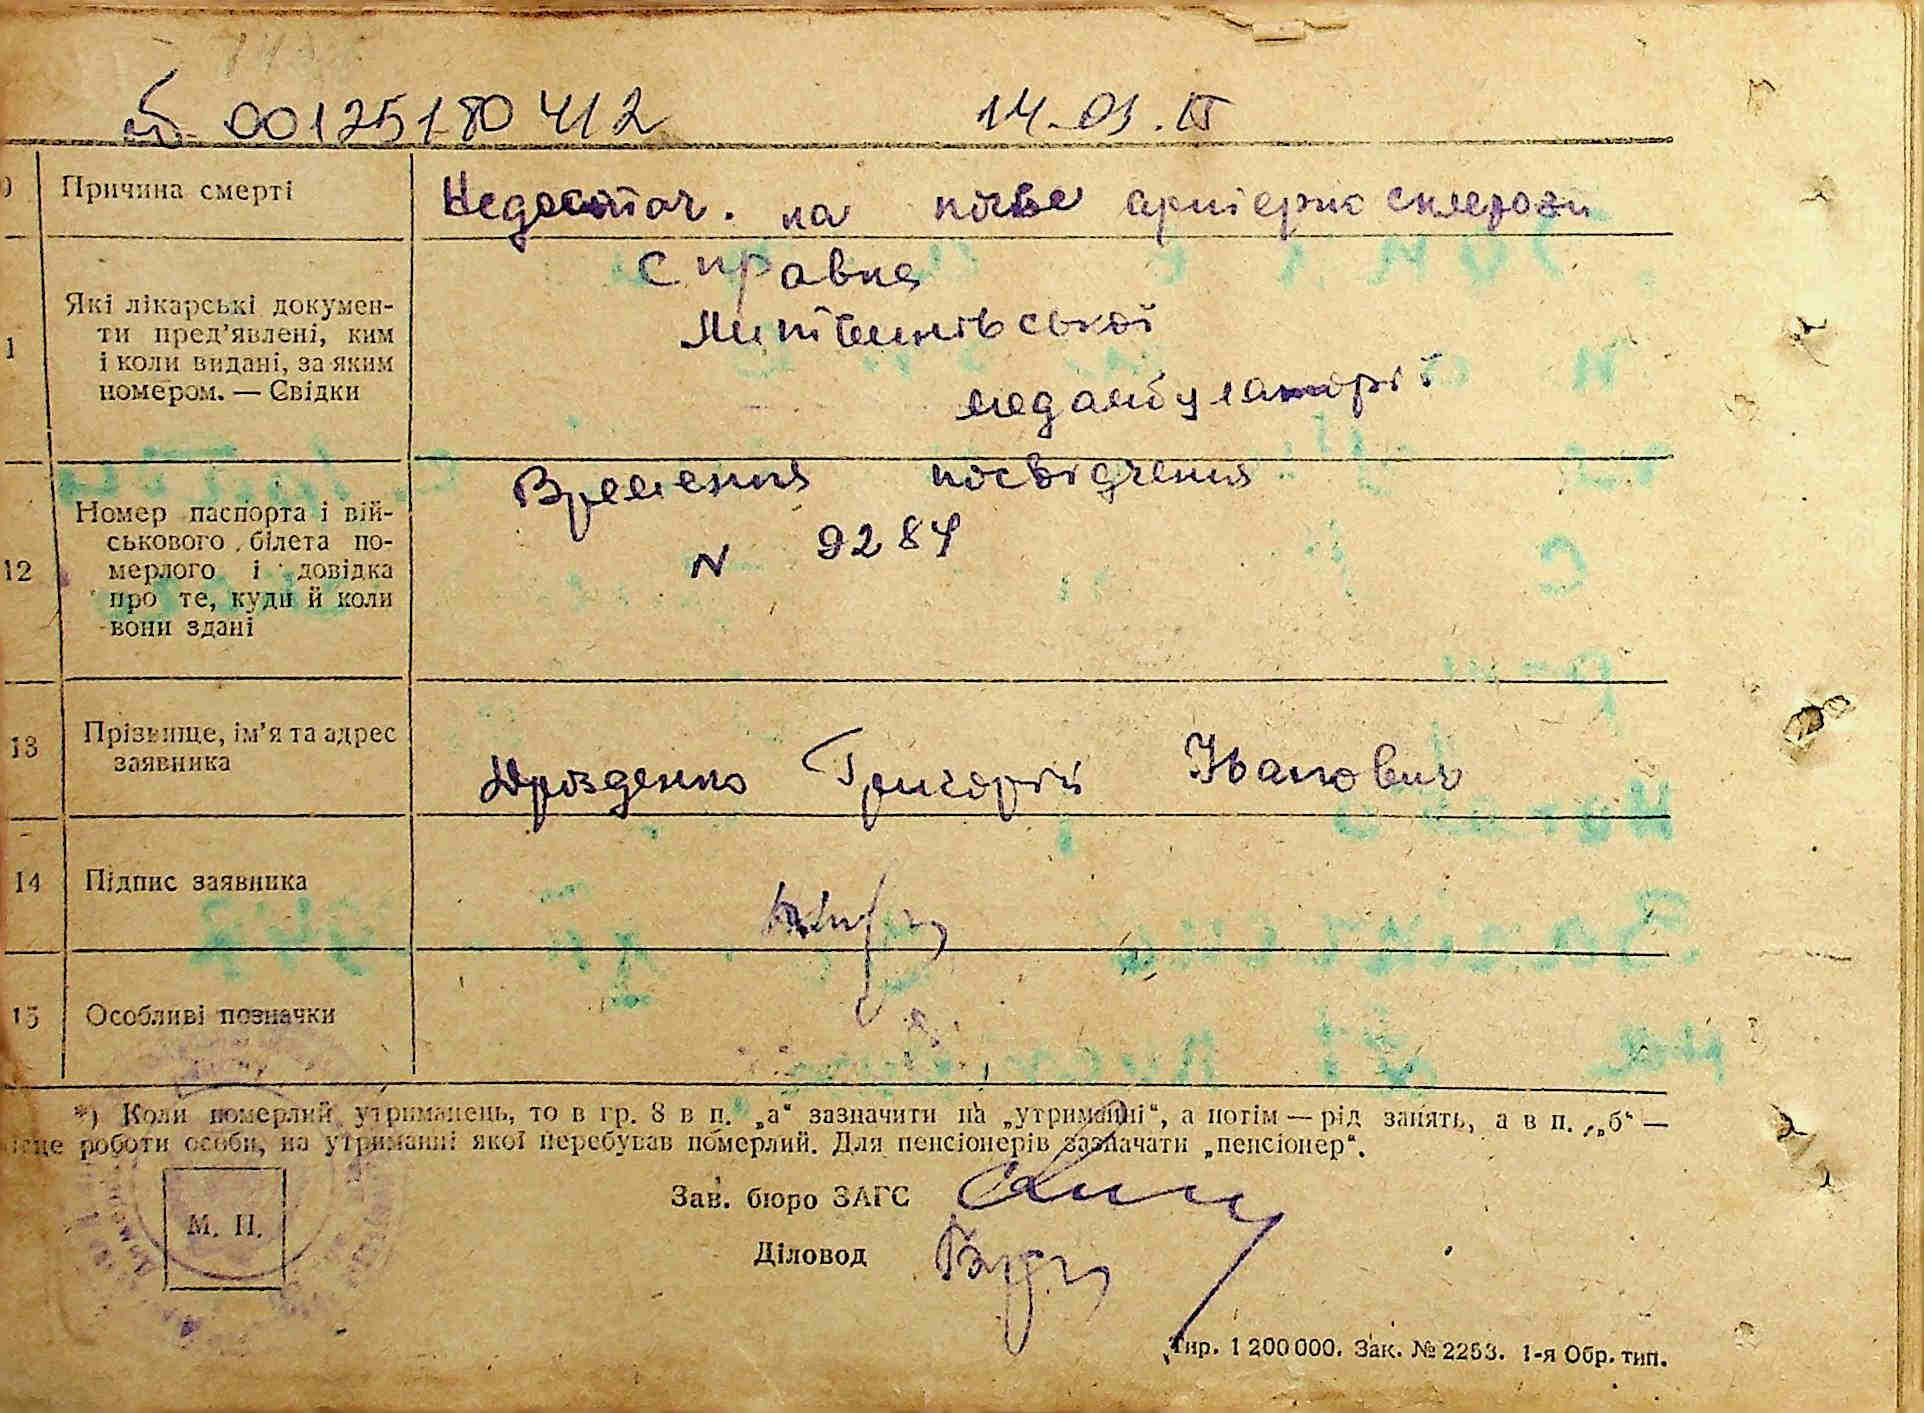 00125180412 14.01.
Причина смерті
Недостач. на почве артіерио склерози
Які лікарські докумен-
ти пред’явлені, ким
і коли видані, за яким
номером. — Свідки
Справка
медамбулаторії
12
Номер паспорта і вій-
ськового білета по-
мерлого і довідка
про те, куди й коли
вони здані
Времения посвідчения
N 9284
13
Прізвище, ім’я та адрес
заявника
Дрозденко Григорій Іванович
14
Підпис заявника
15
Особливі позначки
*) Коли померлий утриманець, то в гр. 8 в п. „а“ зазначити на „утриманні“, а потім — рід занять, а в п. „б“ —
роботи особи, на утриманні якої перебував померлий. Для пенсіонерів зазначати „пенсіонер“.
М. П.
Зав. бюро ЗАГС
Діловод
Тир. 1 200 000. Зак. № 2253. 1-я Обр. тип.